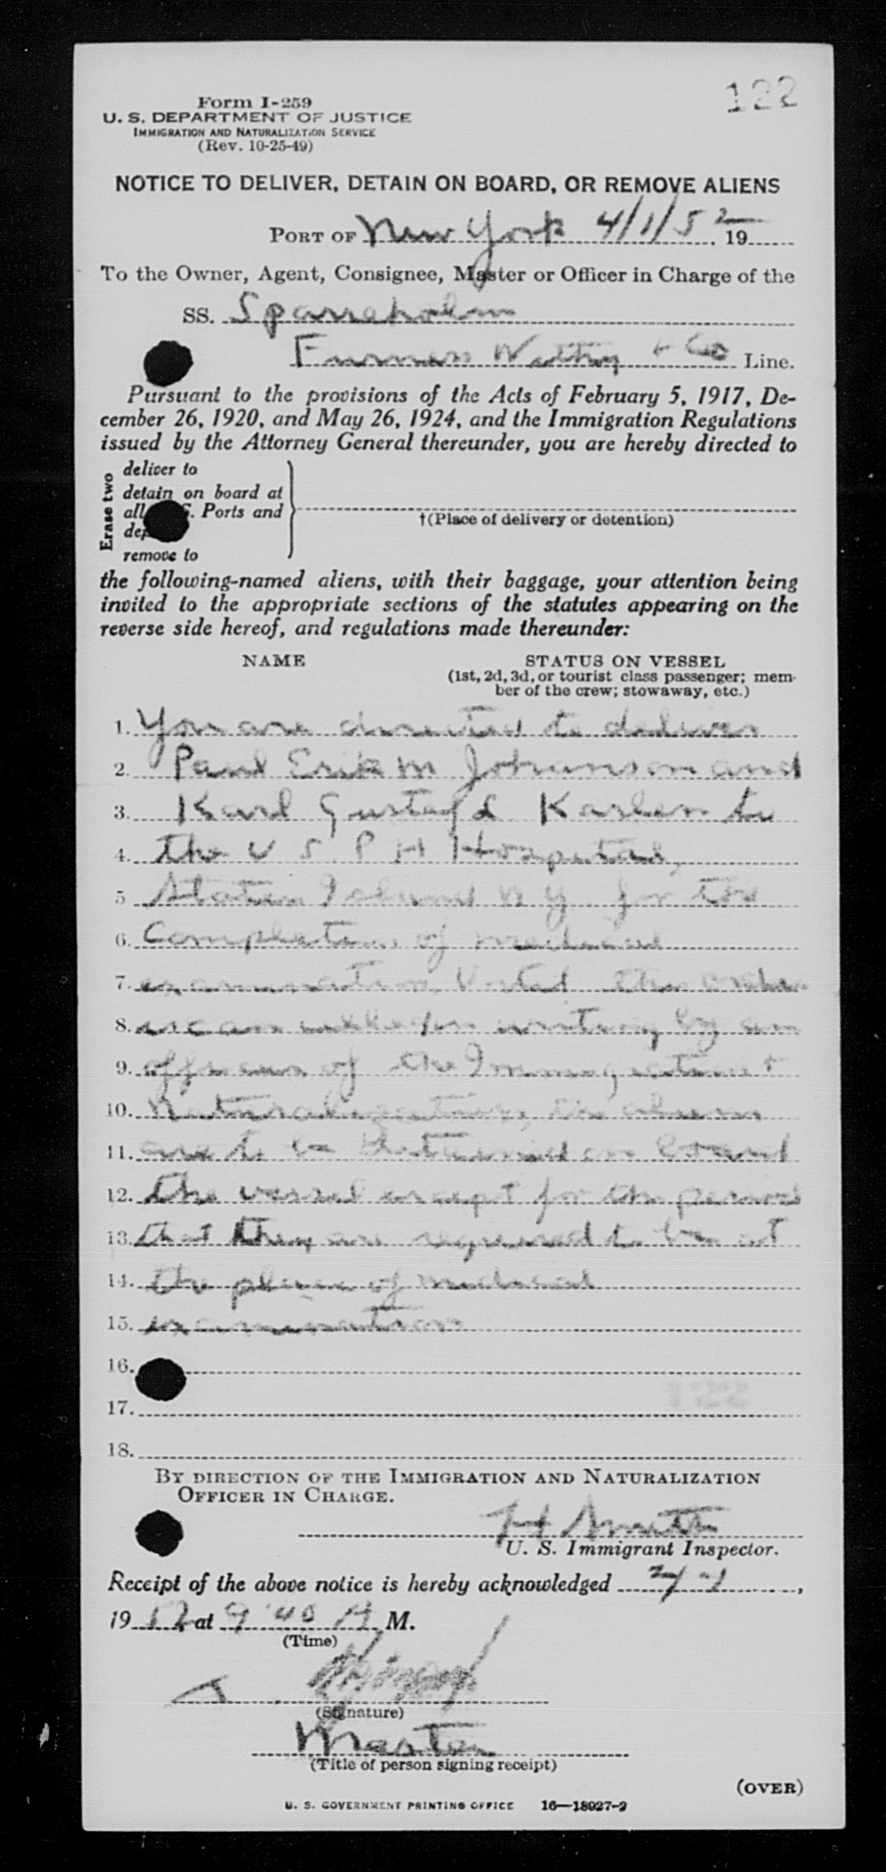 122
Form I-259
U. S. DEPARTMENT OF JUSTICE
IMMIGRATION AND NATURALIZATION SERVICE
(Rev. 10-25-49)
NOTICE TO DELIVER, DETAIN ON BOARD, OR REMOVE ALIENS
PORT OF New York 4/1/52, 19
To the Owner, Agent, Consignee, Master or Officer in Charge of the
SS. Sparreholm
Furness Withy & Co Line.
Pursuant to the provisions of the Acts of February 5, 1917, De-
cember 26, 1920, and May 26, 1924, and the Immigration Regulations
issued by the Attorney General thereunder, you are hereby directed to
Erase two
deliver to
detain on board at
all S. Ports and
remove to
†(Place of delivery or detention)
the following-named aliens, with their baggage, your attention being
invited to the appropriate sections of the statutes appearing on the
reverse side hereof, and regulations made thereunder:
NAME STATUS ON VESSEL
(1st, 2d, 3d, or tourist class passenger; mem-
ber of the crew; stowaway, etc.)
1. You are directed to deliver
2. Paul Erik M Johanson and
3. Karl Gustaf L Karlen to
4. the U S P H Hospital,
5 Staten Island N Y for the
6. Completion of medical
7. examination. Until this order
8. is cancelled in writing by an
9. officer of the Immigration &
10. Naturalization, the aliens
11. are to be detained on board
12. the vessel except for the period
13. that they are required to be at
14. the place of medical
15. examination
16.
17. 122
18.
BY DIRECTION OF THE IMMIGRATION AND NATURALIZATION
OFFICER IN CHARGE.
H Smith
U. S. Immigrant Inspector.
Receipt of the above notice is hereby acknowledged
1952 at 9:40 A M.
(Time)
(Signature)
Master
(Title of person signing receipt)
(OVER)
U. S. GOVERNMENT PRINTING OFFICE 16—18027-2